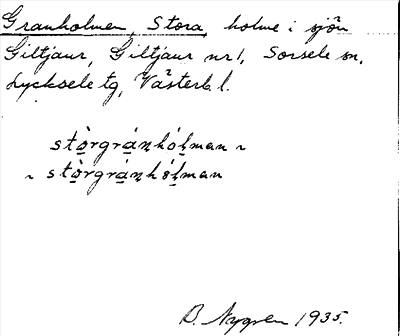 Granholmen, Stora, holme i sjön
Giltjaur, Giltjaur nr 1, Sorsele sn,
Lycksele tg, Västerb. l.
stòrgránhólman ~
~ stòrgránhólman
B. Nygren 1935.